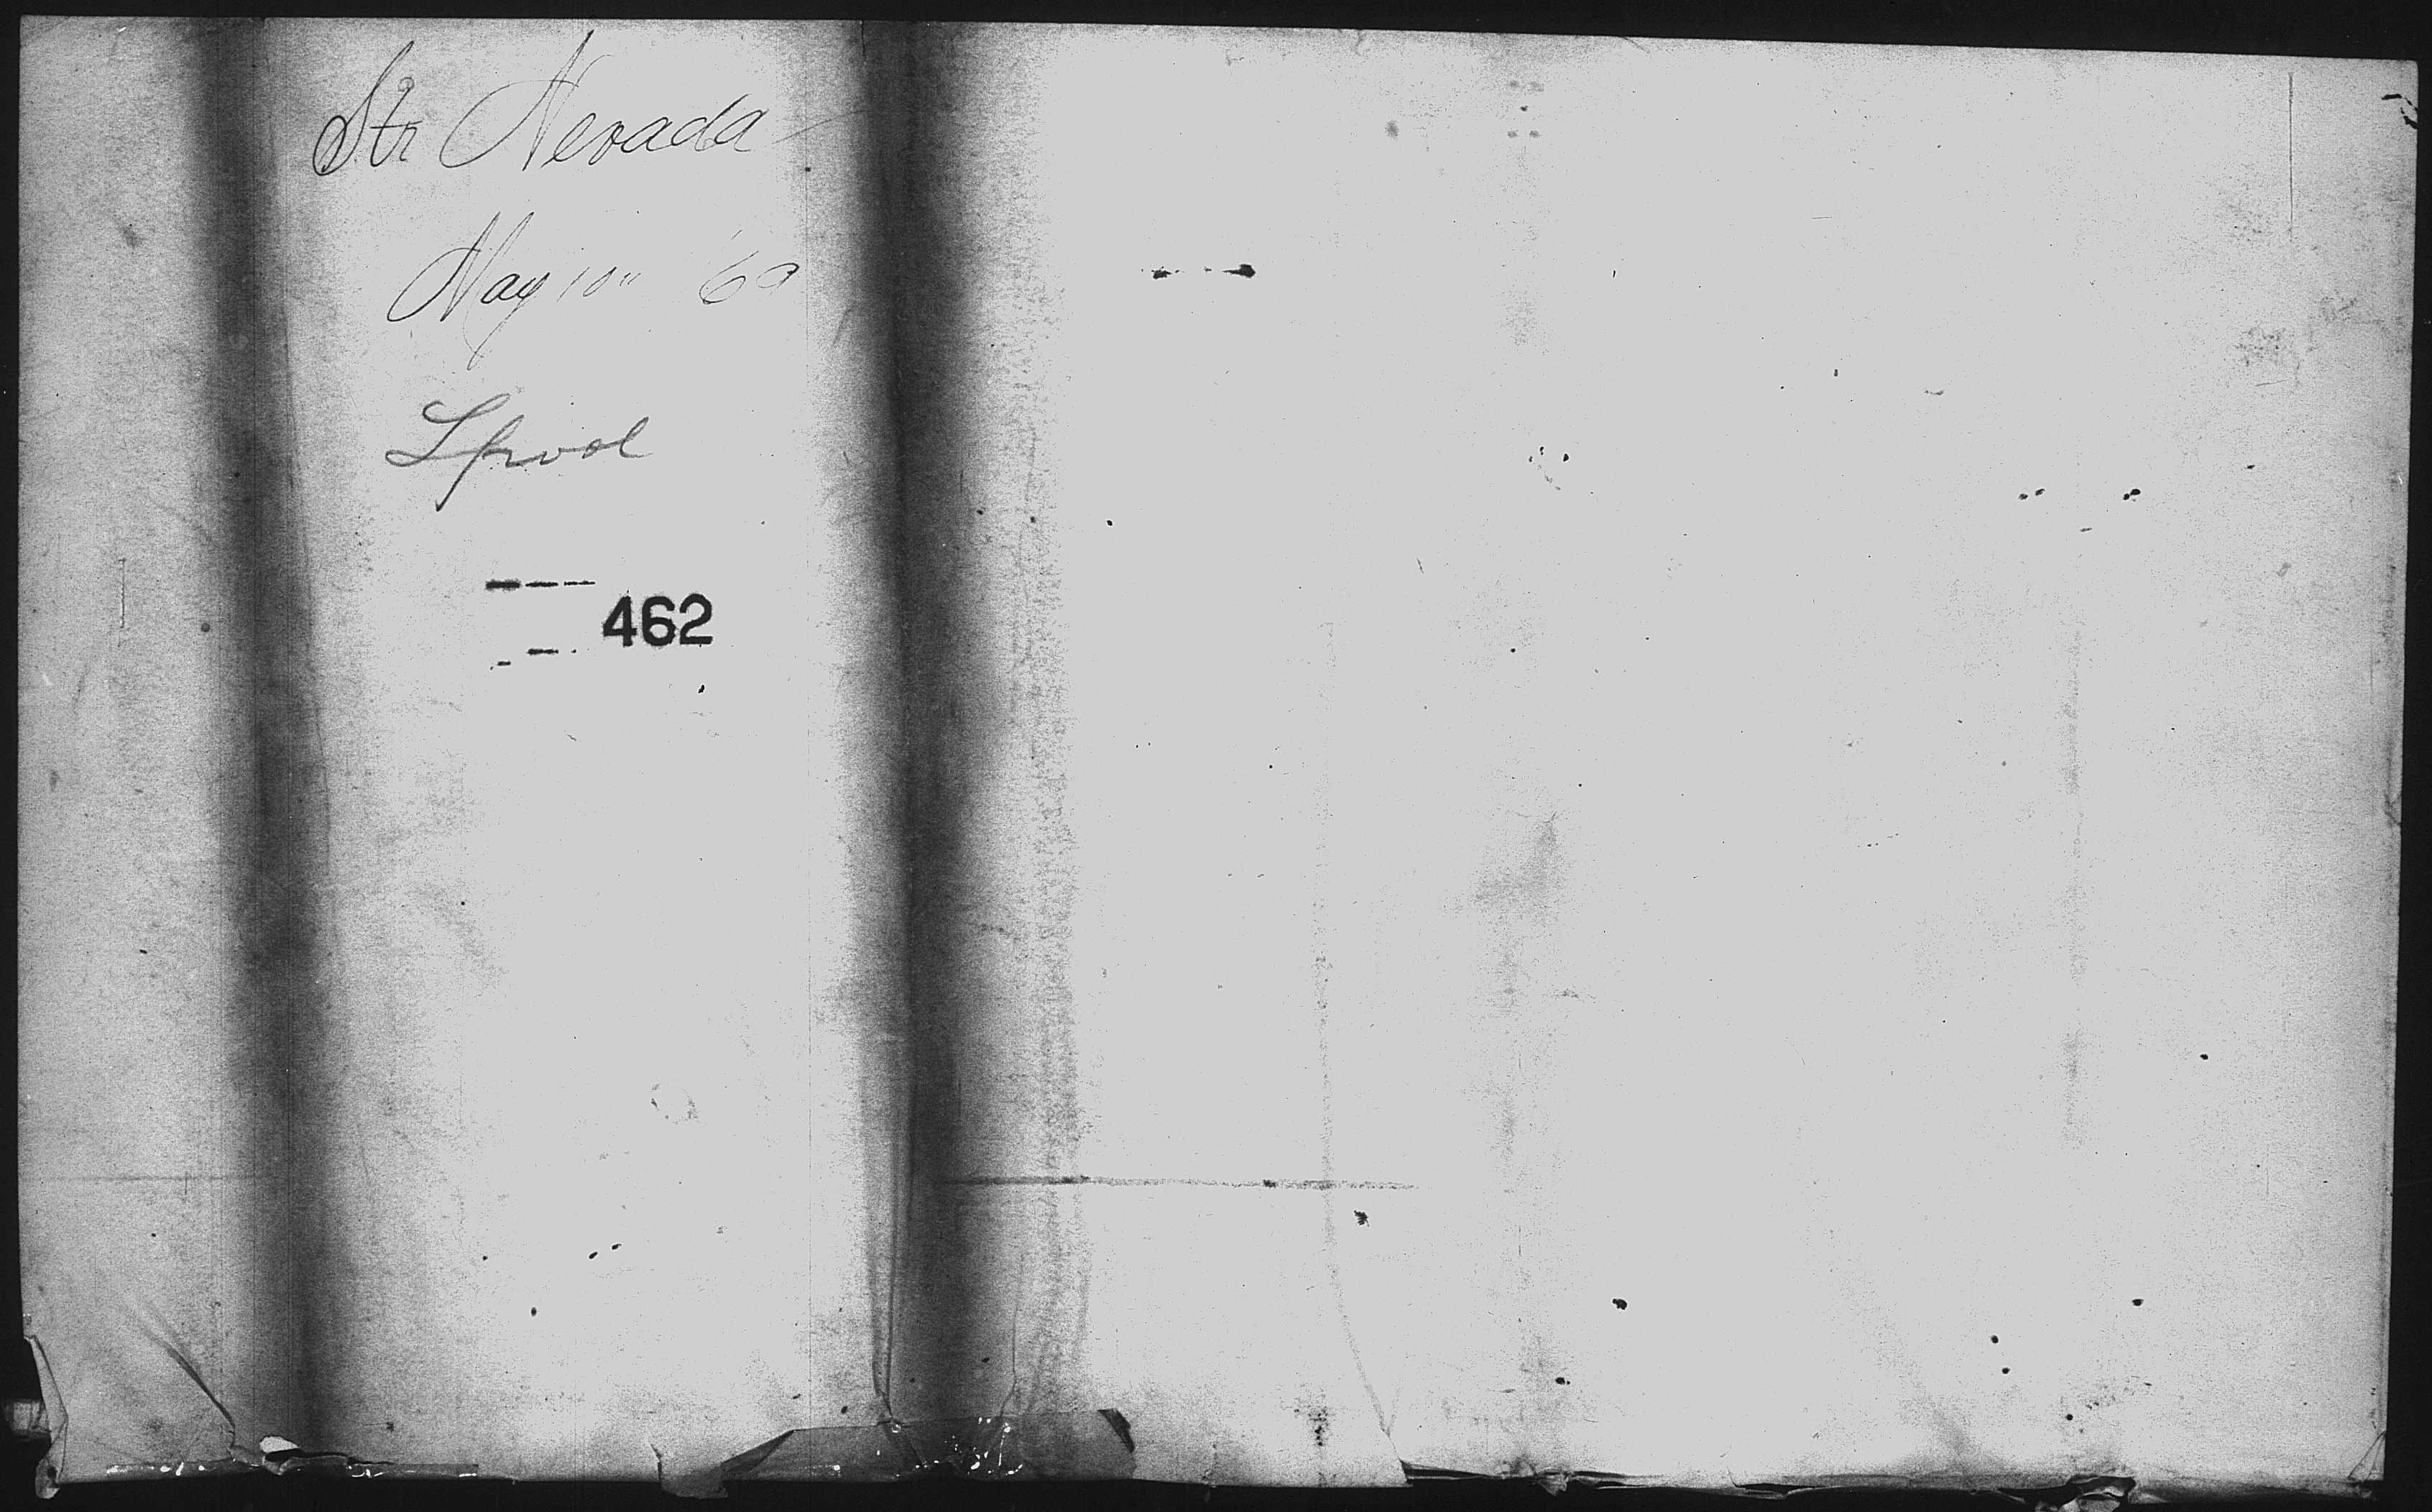 Str Nevada
May 10" '69
Lpool
462